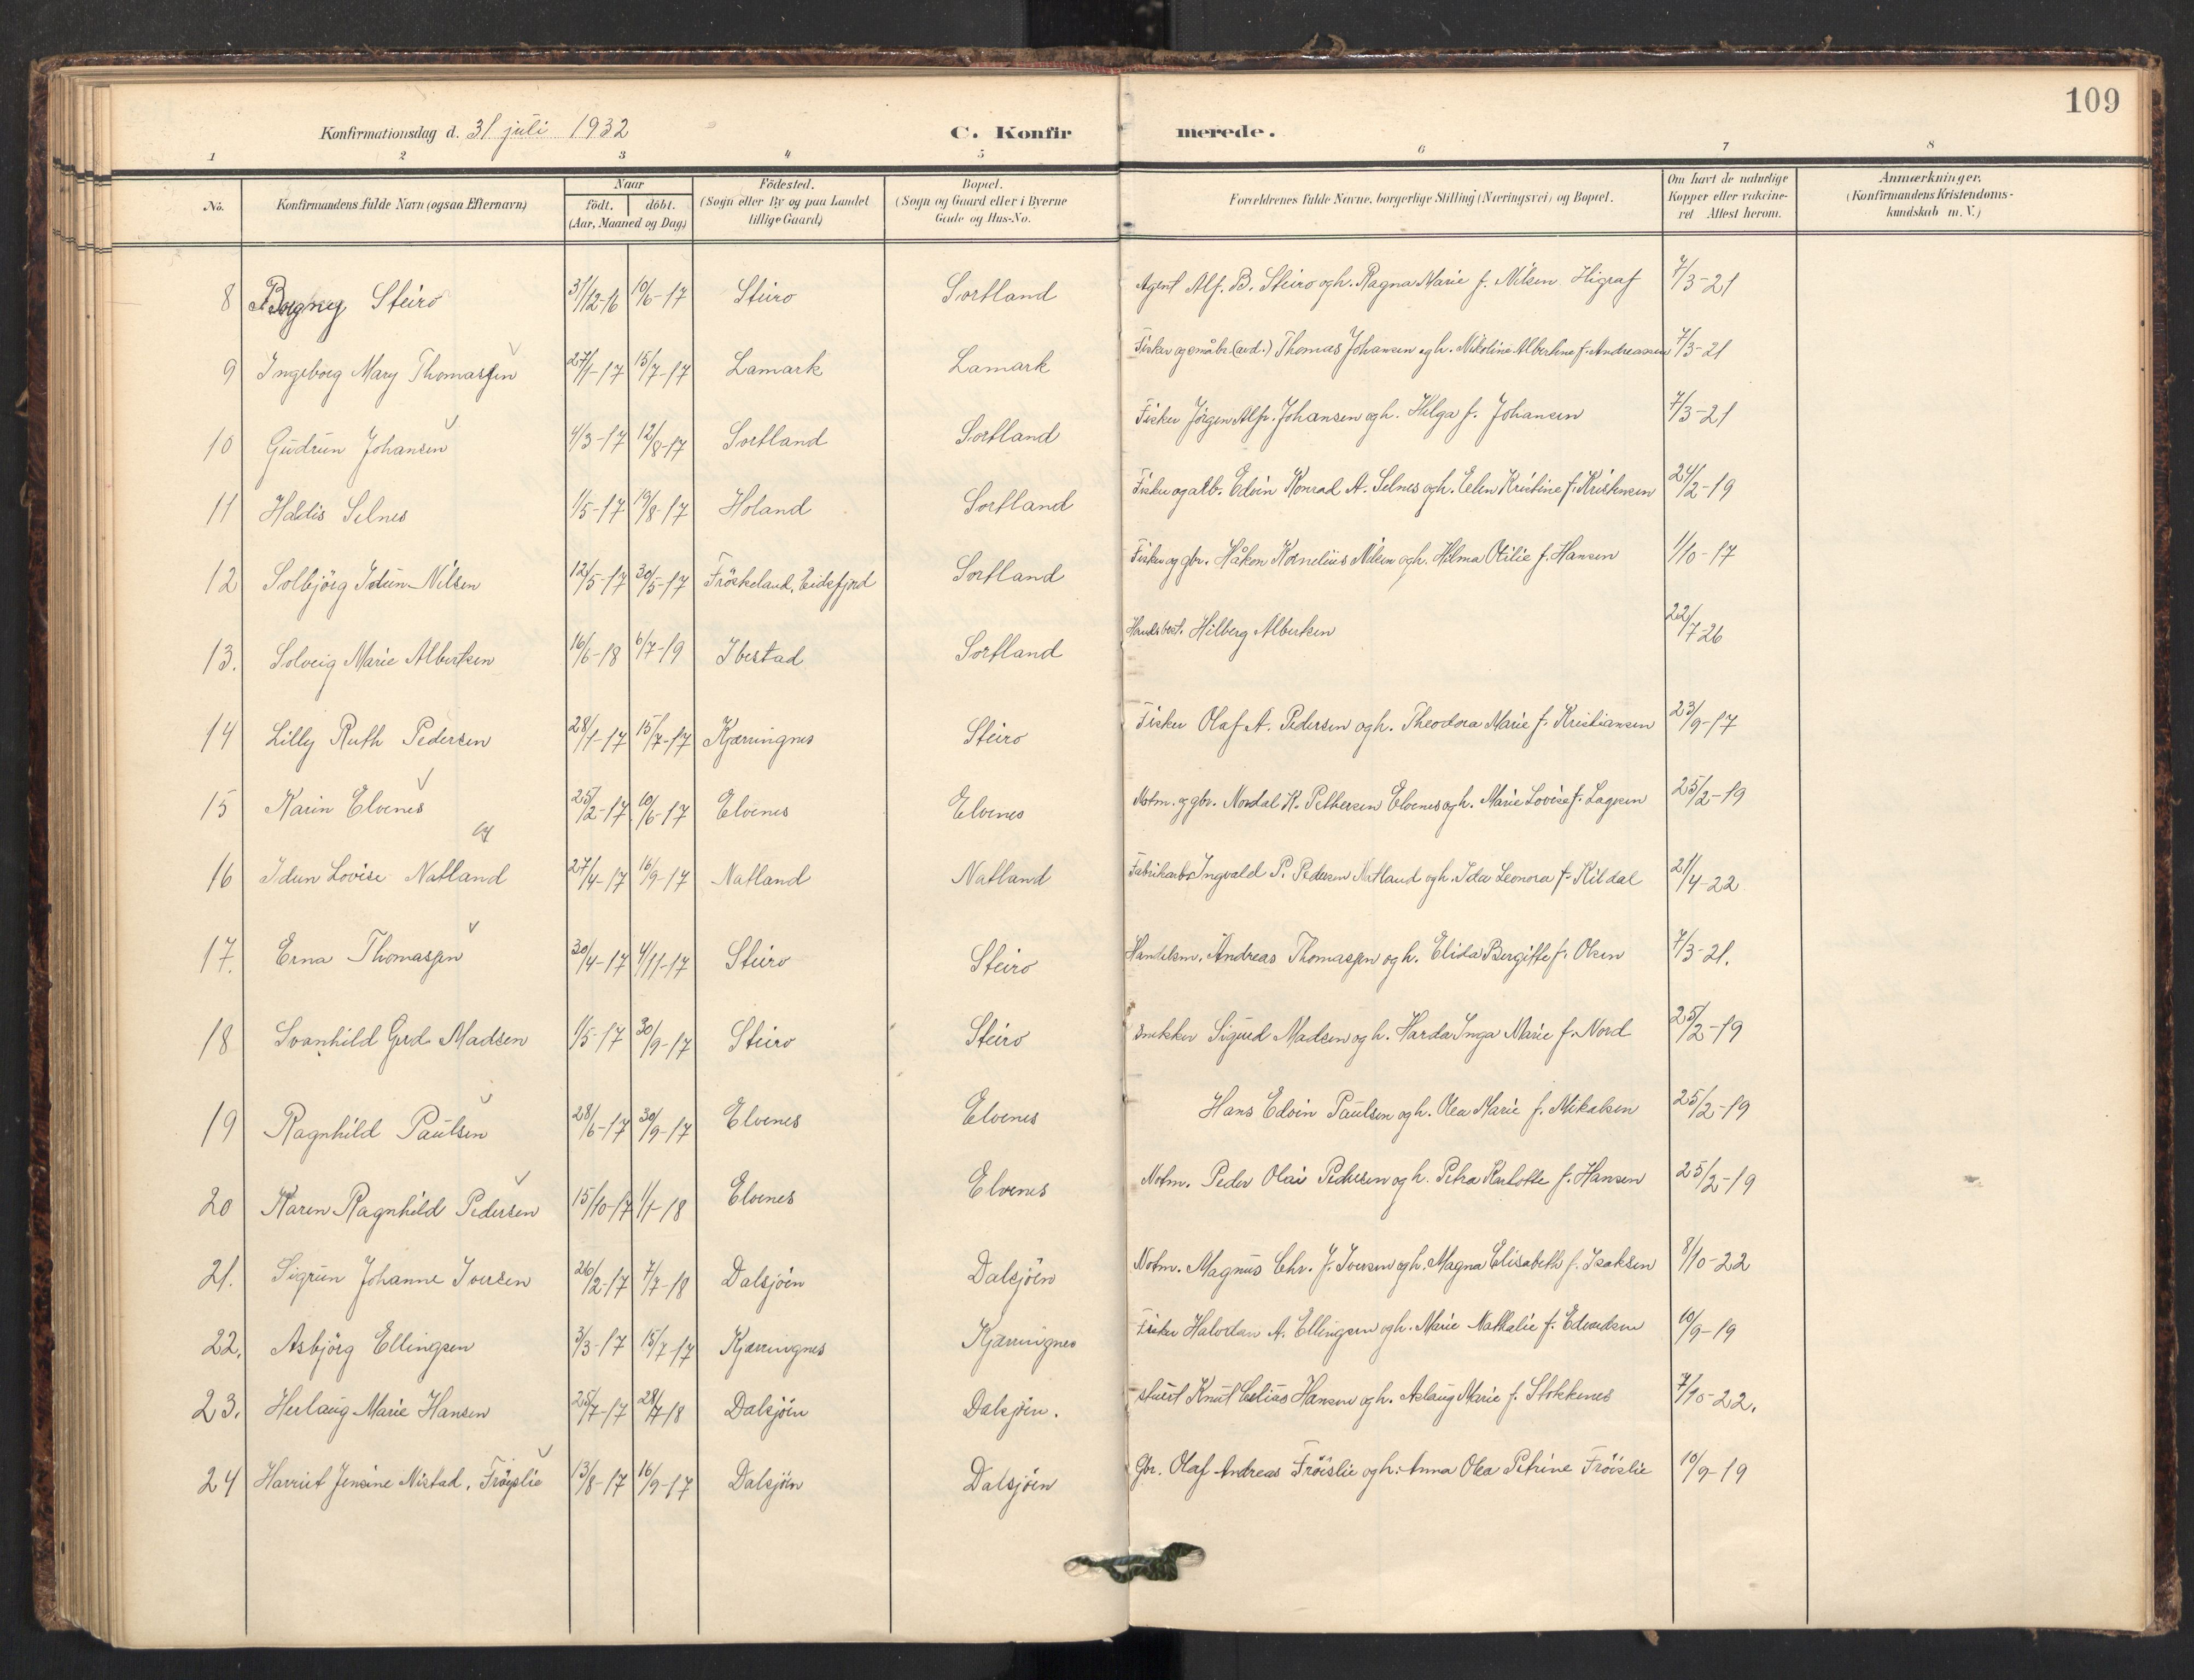 109
Konfirmationsdag d. 31 juli 1932 C. Konfirmerede.
1 2 3 4 5 6 7 8
No. Konfirmandens fulde Navn (ogsaa Efternavn) Naar födt. döbt. (Aar, Maaned og Dag) Födested. (Sogn eller By og paa Landet tillige Gaard) Bopæl. (Sogn og Gaard eller i Byerne Gade og Hus-No. Forældrenes fulde Navne, borgerlige Stilling (Næringsvei) og Bopæl. Om havt de naturlige Kopper eller vakcineret Attest herom. Anmærkninger. (Konfirmandens Kristendomskundskab m. V.)
8 Borgny Steiro 31/12-16 10/6-17 Steiro Sortland Agent Alf. B. Steiro og h. Ragna Marie f. Nilsen Higraf 7/3-21
9 Ingeborg Mary Thomassen 27/1-17 15/7-17 Lamark Lamark Fisker og småbr. (avd.) Thomas Johansen og h. Nikoline Albertine f. Andreassen 7/3-21
10 Gudrun Johansen 4/3-17 12/8-17 Sortland Sortland Fisker Jørgen Alfr. Johansen og h. Helga f. Johansen 7/3-21
11 Haldis Selnes 1/5-17 19/8-17 Holand Sortland Fisker og arb. Edvin Konrad A. Selnes og h. Elen Kristine f. Kristensen 24/2-19
12 Solbjörg Idun Nilsen 12/5-17 30/5-17 Fröskeland, Eidsfjord Sortland Fisker og gbr. Håkon Kornelius Nilsen og h. Hilma Otilie f. Hansen 1/10-17
13. Solveig Marie Albertsen 16/6-18 6/7-19 Ibestad Sortland Handsbest. Hilberg Albertsen 22/7-26
14 Lilly Ruth Pedersen 28/1-17 15/7-17 Kjærringnes Steiro Fisker Olaf A. Pedersen og h. Theodora Marie f. Kristiansen 23/9-17
15 Karin Elvenes 25/2-17 10/6-17 Elvenes Elvenes Notm. og gbr. Nordal K. Pettersen Elvenes og h. Marie Lovise f. Lagesen 25/2-19
16 Idun Lovise Natland 27/4-17 16/9-17 Natland Natland Fabrikarb. Ingvald P. Pedersen Natland og h. Ida Leonora f. Kildal 21/4-22
17. Erna Thomassen 30/4-17 4/11-17 Steiro Steiro Handelsm. Andreas Thomassen og h. Elida Bergitte f. Olsen 7/3-21.
18 Svanhild Gerd Madsen 1/5-17 30/9-17 Steiro Steiro Snekker Sigurd Madsen og h. Harda Inga Marie f. Nord 25/2-19
19 Ragnhild Paulsen 28/6-17 30/9-17 Elvenes Elvenes Hans Edvin Paulsen og h. Olea Marie f. Mikalsen 25/2-19
20 Karen Ragnhild Pedersen 15/10-17 1/1-18 Elvenes Elvenes Notm. Peder Olai Pedersen og h. Petra Karlotte f. Hansen 25/2-19
21. Sigrun Johanne Iversen 26/2-17 7/7-18 Dalsjöen Dalsjöen Notm. Magnus Chr. J. Iversen og h. Magna Elisabeth f. Isaksen 8/10-22
22. Asbjörg Ellingsen 3/3-17 15/7-17 Kjærringnes Kjærringnes Fisker Halvdan A. Ellingsen og h. Marie Nathalie f. Edvardsen 10/9-19
23. Herlaug Marie Hansen 25/7-17 28/7-18 Dalsjöen Dalsjöen. Knut Celius Hansen og h. Aslaug Marie f. Stokkenes 7/10-22.
24 Harriet Jensine Nistad, Fröyslie 13/8-17 16/9-17 Dalsjöen Dalsjöen Gbr. Olaf Andreas Fröislie og h. Anna Olea Petrine Fröislie 10/9-19